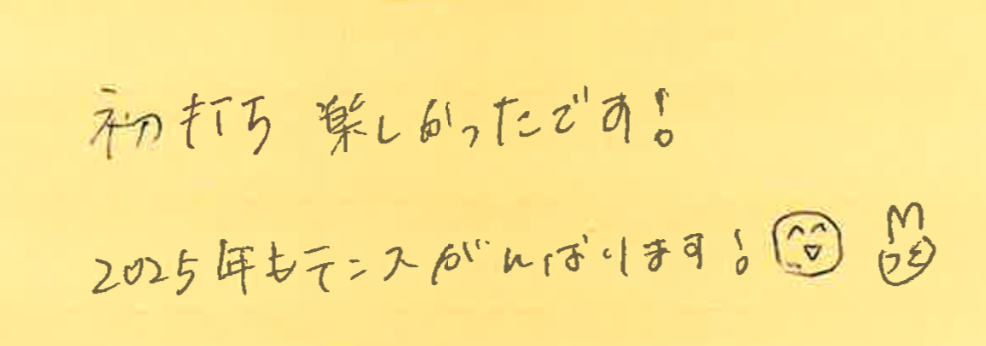 初打ち 楽しかったです!
2025年もテニスがんばります!